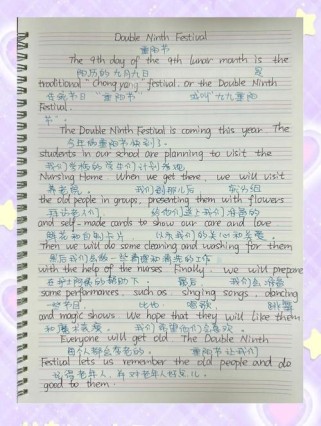 Double Ninth Festival
重阳节
The 9th day of the 9th lunar month is the
阴历的九月九日 是
traditional "Chong yang" festival. or the Double Ninth
传统节日 "重阳节" 九九重阳
Festival.
节"。
The Double Ninth Festival is coming this year. The
今年的重阳节快到了。
students in our school are planning to visit the
我们学校的 计划
Nursing Home. When we get there, we will visit
养老院。 我们到那儿后
the old people in groups, presenting them with flowers
老人们 给他们送上我们准备的
and self-made cards to show our care and love.
鲜花和自制卡片 我们的关心和关爱。
Then we will do some cleaning and washing for them
然后我们会做一些清理和清洗的工作
with the help of the nurses. Finally, we will prepare
在护士 帮助下。 最后 我们会准备
some performances, such as singing songs, dancing
一些节目 比如
and magic shows. We hope that they will like them.
和魔术表演。 我们希望他们会喜欢。
Everyone will get old. The Double Ninth
每个人都会变老的。 重阳节让我们
Festival lets us remember the old people and do
记得老年人,
good to them.